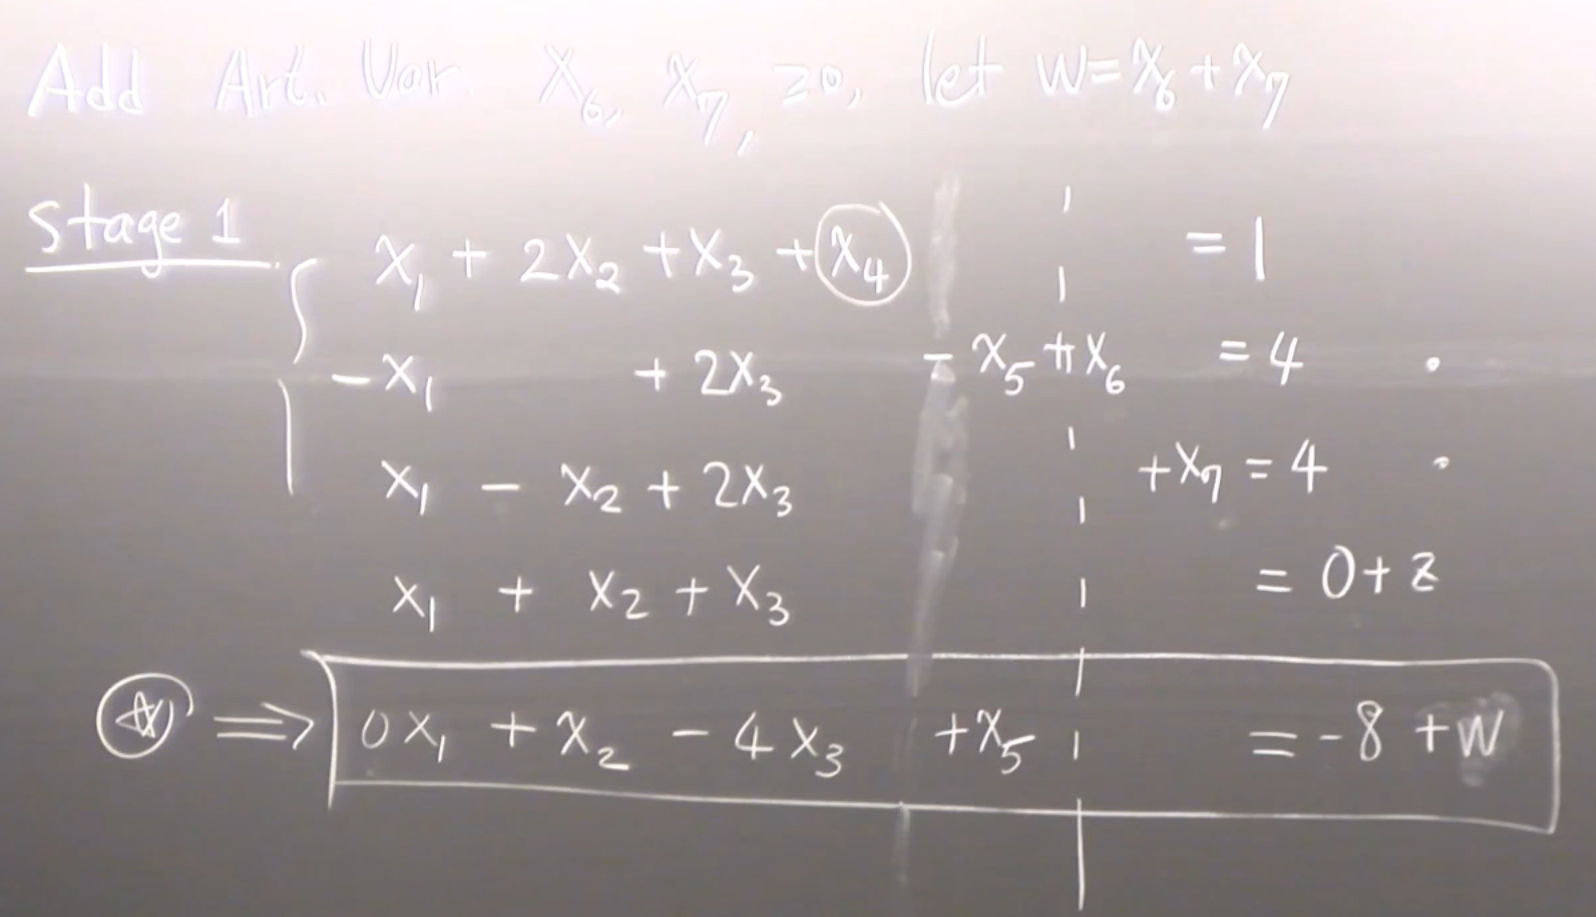 Add Art. Var. X₆, X₇, ≥0, let W=X₆+X₇
Stage 1
X₁ + 2X₂ +X₃ +X₄ = 1
-X₁ + 2X₃ - X₅ +X₆ = 4 .
X₁ - X₂ + 2X₃ +X₇ = 4 .
X₁ + X₂ + X₃ = 0+z
(*) ⇒ 0X₁ + X₂ - 4X₃ +X₅ = -8 +W